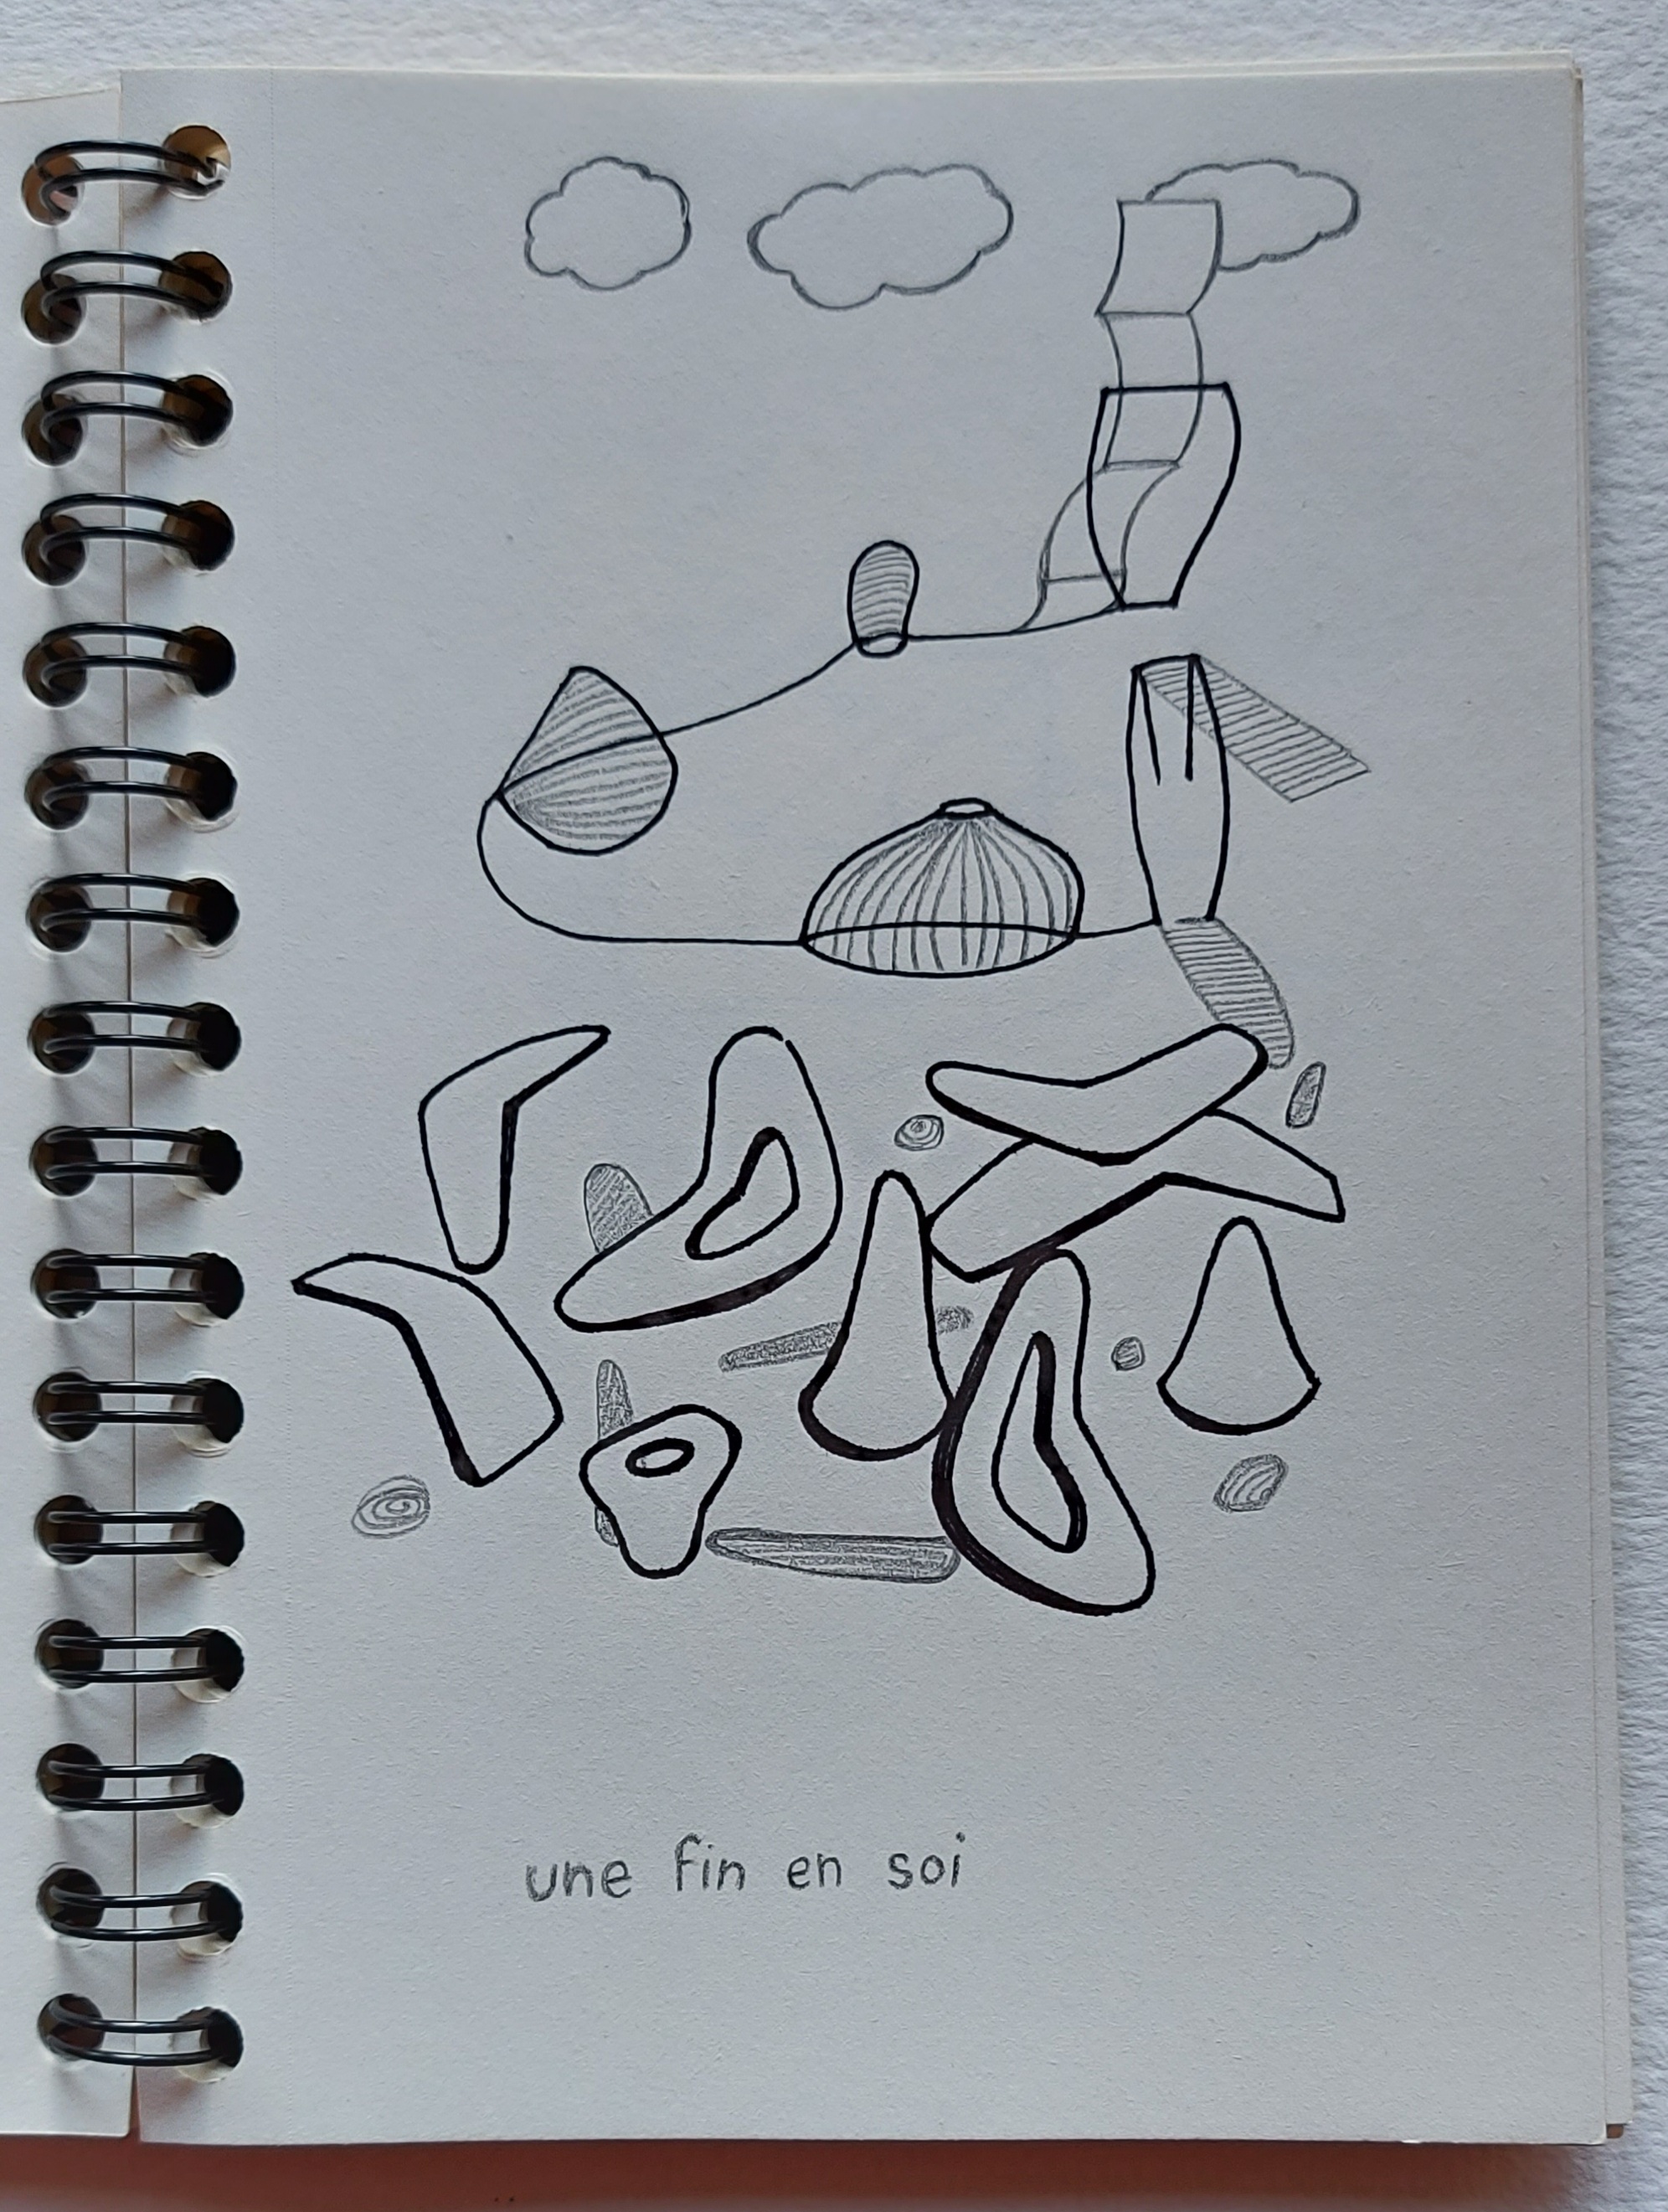 une fin en soi